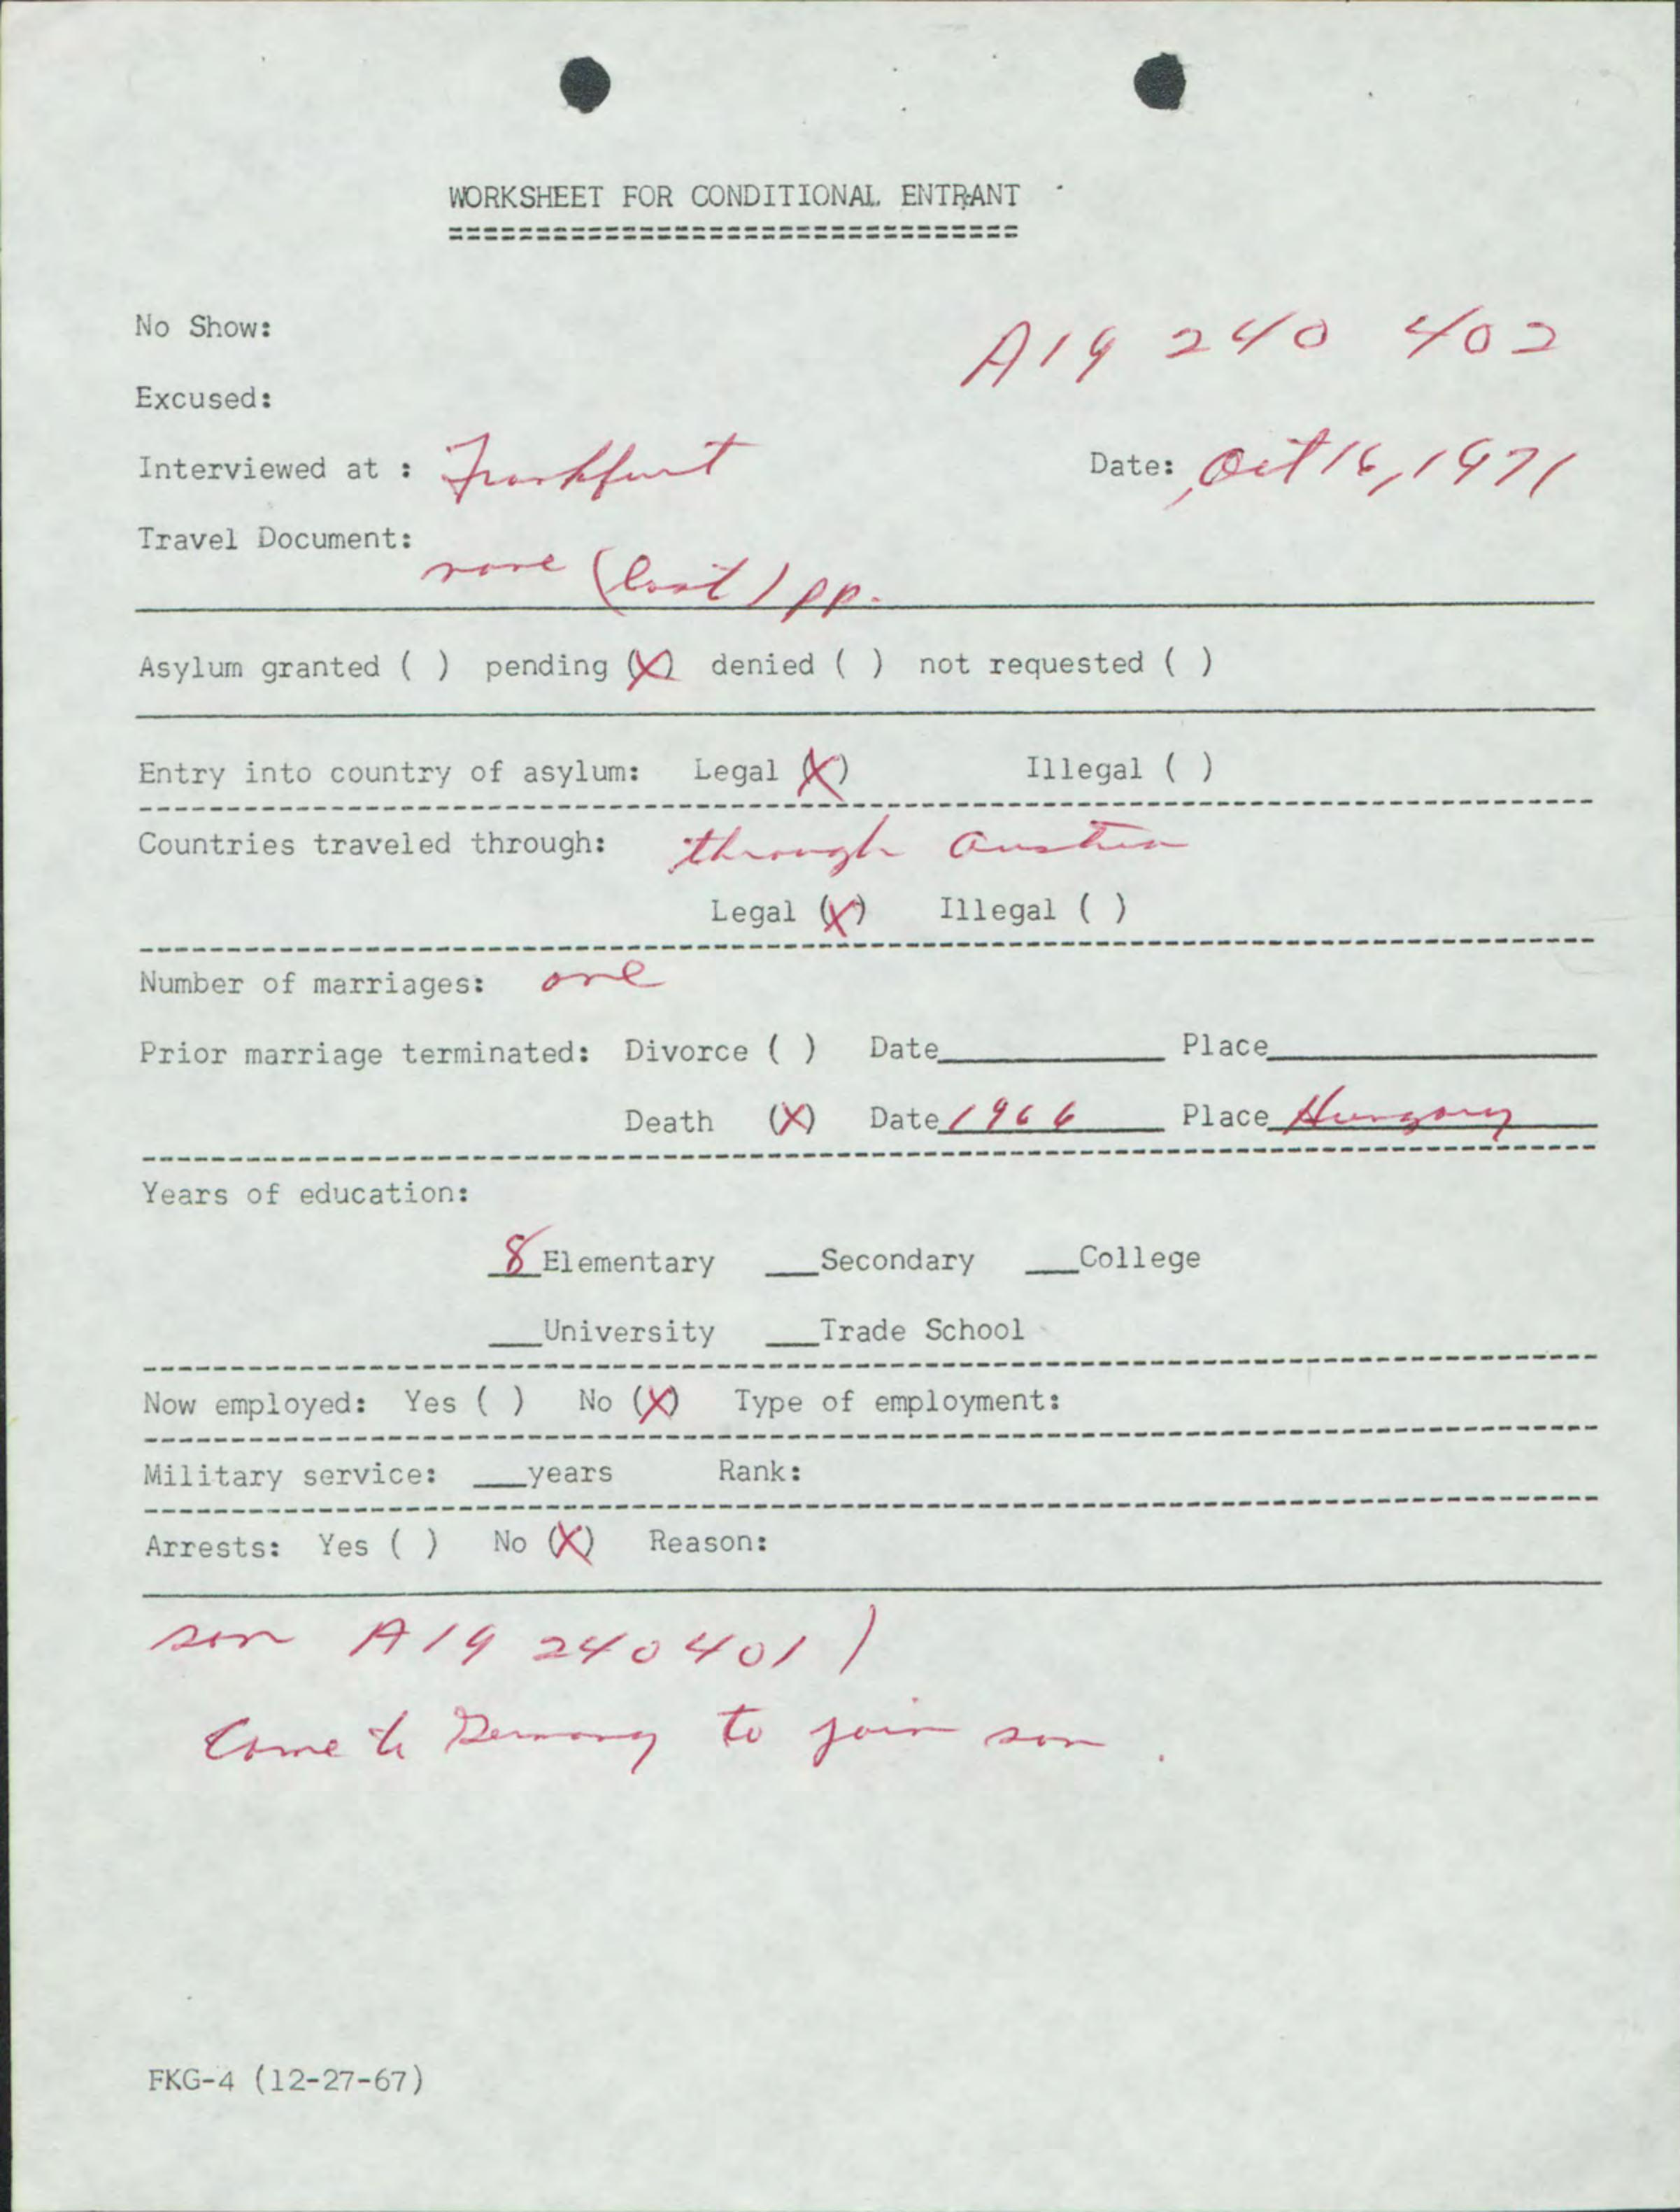 WORKSHEET FOR CONDITIONAL ENTRANT
=================================
No Show:
A19 240 402
Excused:
Interviewed at : Frankfurt Date: Oct 16, 1971
Travel Document: none (lost) pp.
Asylum granted ( ) pending (X) denied ( ) not requested ( )
Entry into country of asylum: Legal (X) Illegal ( )
Countries traveled through: through Austria
Legal (X) Illegal ( )
Number of marriages: one
Prior marriage terminated: Divorce ( ) Date____ Place____
Death (X) Date 1966 Place Hungary
Years of education:
8 Elementary ___Secondary ___College
___University ___Trade School
Now employed: Yes ( ) No (X) Type of employment:
Military service: ___years Rank:
Arrests: Yes ( ) No (X) Reason:
son A19 240401)
Come to Germany to join son.
FKG-4 (12-27-67)